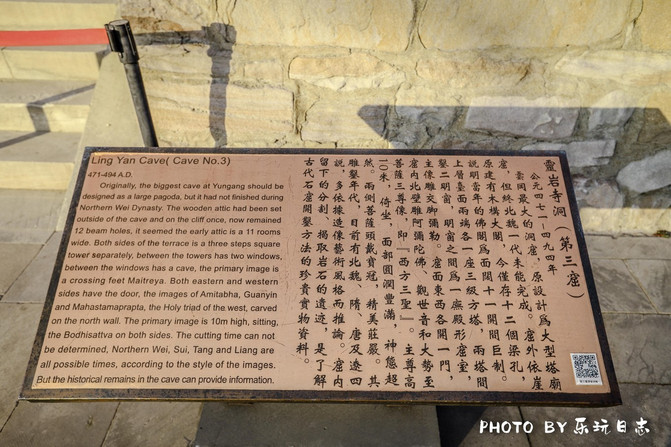 Ling Yan Cave( Cave No.3)
471-494 A.D.
Originally, the biggest cave at Yungang should be
designed as a large pagoda, but it had not finished during
Northern Wei Dynasty. The wooden attic had been set
outside of the cave and on the cliff once, now remained
12 beam holes, it seemed the early attic is a 11 rooms
wide. Both sides of the terrace is a three steps square
tower separately, between the towers has two windows,
between the windows has a cave, the primary image is
a crossing feet Maitreya. Both eastern and western
sides have the door, the images of Amitabha, Guanyin
and Mahastamaprapta, the Holy triad of the west, carved
on the north wall. The primary image is 10m high, sitting,
the Bodhisattva on both sides. The cutting time can not
be determined, Northern Wei, Sui, Tang and Liang are
all possible times, according to the style of the images.
But the historical remains in the cave can provide information.
靈岩寺洞（第三窟）
公元四七一—四九四年
雲岡最大的洞窟，原設計爲大型塔廟
窟，但終北魏一代未能完成。窟外依崖
原建有木構大閣，今僅存十二個梁孔，
説明當年的佛閣爲面闊十一開間巨制。
上層臺面兩端各一座三級方塔，兩塔間
鑿二明窗，明窗之間爲一廡殿形窟室，
主像雕交脚彌勒。窟面東西各開一門，
窟内北壁雕阿彌陀佛、觀世音和大勢至
菩薩三尊像，即『西方三聖』。主尊高
一〇米，倚坐，面部圓潤豐滿，神態超
然。兩側菩薩頭戴寶冠，精美莊嚴。其
雕鑿年代，目前有北魏、隋、唐及遼四
説，多依據造像藝術風格而推論。窟内
留下的分割、揭取岩石的遺迹，是了解
古代石窟開鑿方法的珍貴實物資料。
PHOTO BY 乐玩日志